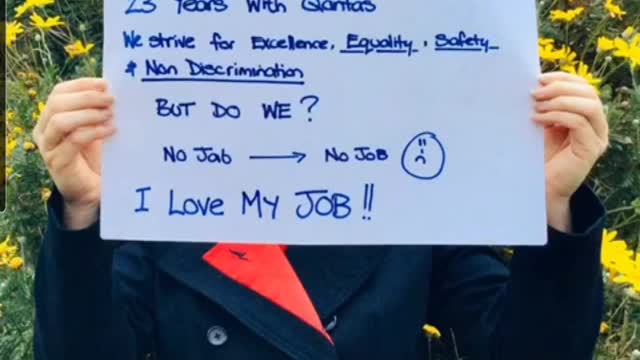 23 Years With Qantas
We strive for Excellence, Equality, Safety
& Non Discrimination
BUT DO WE?
No Jab → No JOB
I Love MY JOB!!